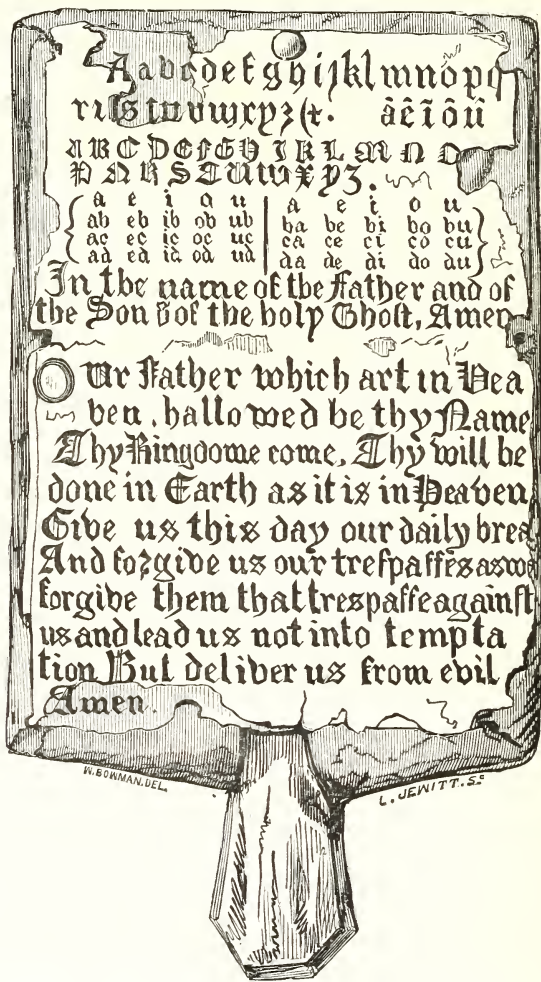 A a b c d e f g h i j k l m n o p q
r ꝛ ſ s t u v w x y z & . ã ẽ ĩ õ ũ
A B C D E F G H I K L M N O
P Q R S T U W X Y Z .
a e i o u | a e i o u
ab eb ib ob ub | ba be bi bo bu
ac ec ic oc uc | ca ce ci co cu
ad ed id od ud | da de di do du
In the name of the Father and of
the Son & of the holy Ghoſt, Amen
OUr Father which art in Hea
ven, hallowed be thy Name
Thy Kingdome come, Thy will be
done in Earth as it is in Heaven,
Give us this day our daily brea
And forgive us our treſpaſſes as we
forgive them that treſpaſſe againſt
us and lead us not into tempta
tion But deliver us from evil
Amen.
W. BOWMAN. DEL.
L. JEWITT. Sc